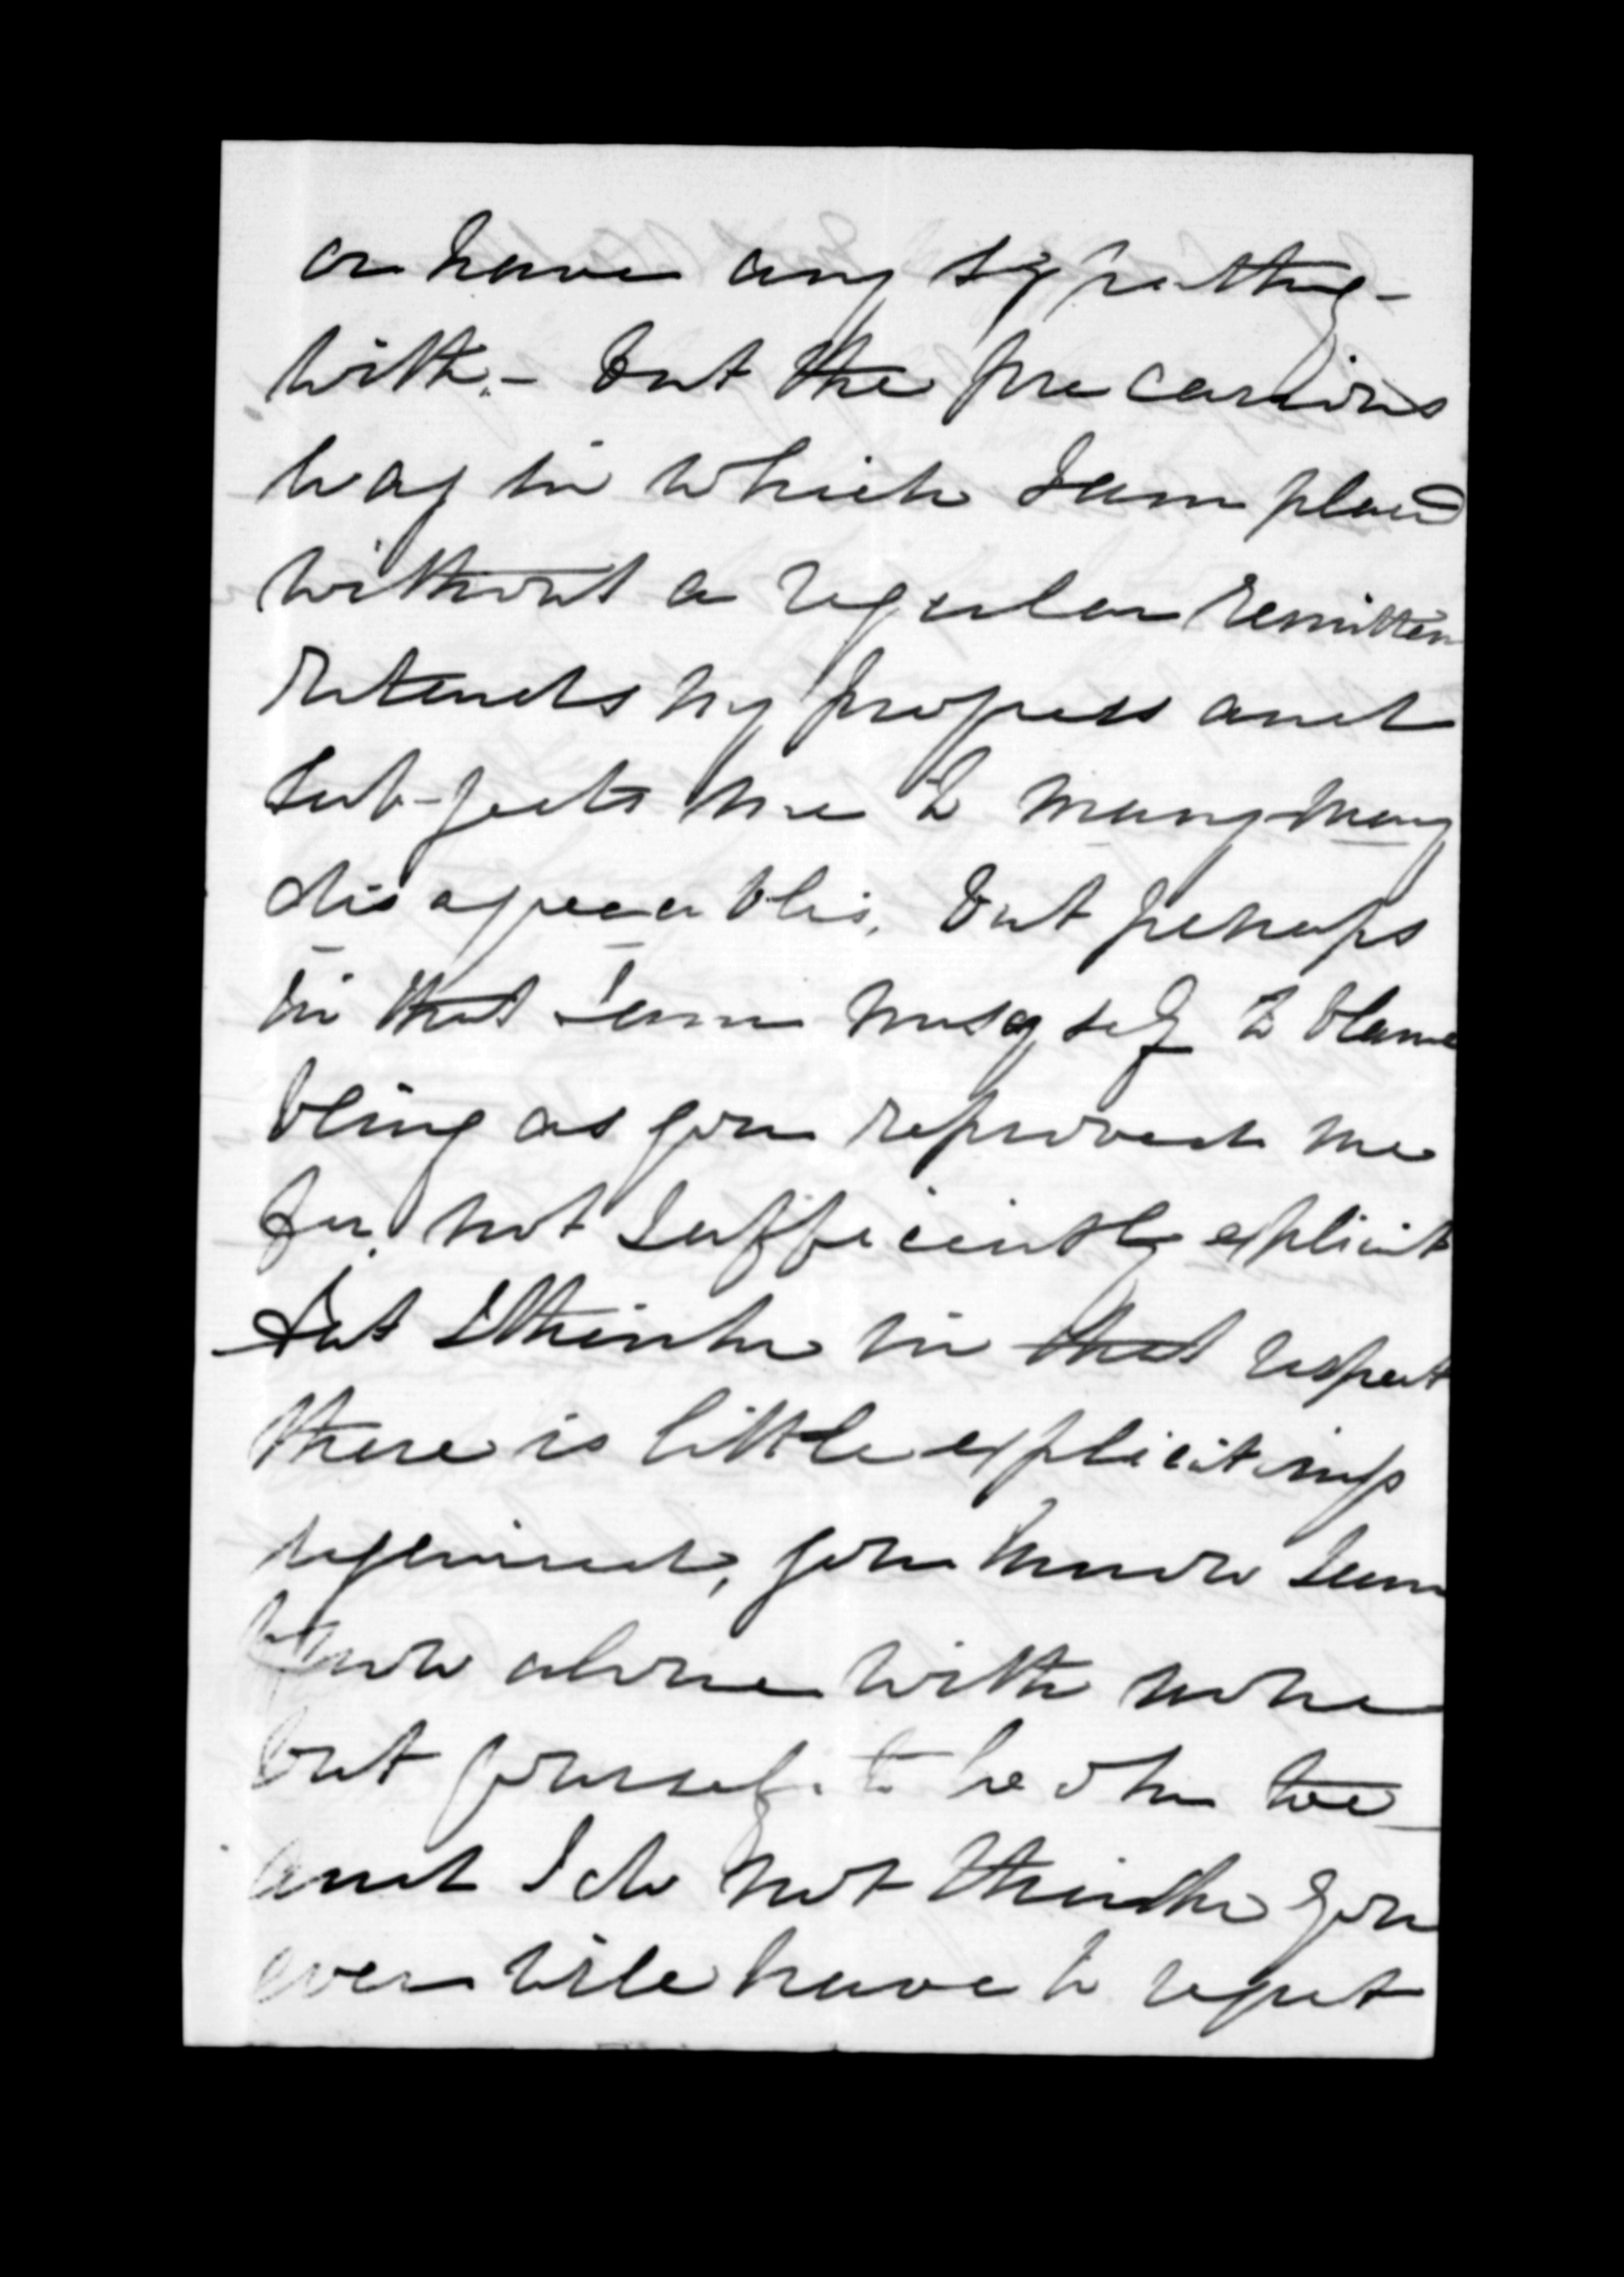 or have any sypathy -
with. - But the precarious
way in which I am placed
without a regular remitten
retards my progress and
sub-jects me to many many
disagreeablis, But perhaps
in that I am mysself to blame
bling as you reproved me
for not sufficiently explicit
But I think in that respect
there is little explicitniss
required, you know I am
now alone with none
but yourself. to look too
and I do not think you
ever will have to regret